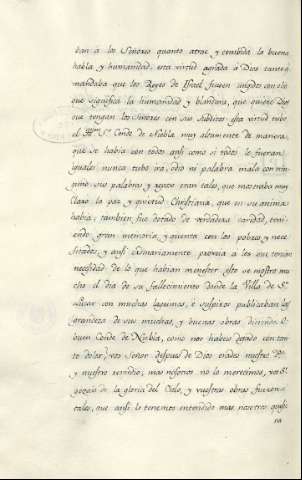 ban a los Señores quanto atrae y combida la buena
habla y humanidad: esta virtud agrada à Dios tanto
mandaba que los Reyes de Israel fuesen ungidos con olio
que significa la humandad y blandura, que quiere Dios
que tengan los Señores con sus subditos esta virtud tubo
el Yll.º S.r Conde de Niebla muy altamente de manera
que se habia con todos ansi como si todos le fueran
iguales nunca tubo ira, odio ni palabra mala con nin-
guno sus palabras y gestos eran tales, que mostraba muy
claro la paz y quietud Christiana, que en su anima
habia; tambien fue dotado de verdadera caridad, teni-
endo gran memoria, y quenta con los pobres y nece
sitados, y ansi ordinariamente proveia a los que tenian
necesidad de lo que habian menester esto se mostro mu
cho el dia de su fallecimiento donde la Villa de S.n
Lucar con muchas lagrimas, è suspiros publicaban las
grandezas de sus muchas, y buenas obras diciendo o
buen Conde de Niebla, como nos habeis dejado con tan
to dolor, vos Señor despues de Dios erades nuestro P.e
y nuestro remedio; mas nosotros no lo merecimos, vos S.r
gozais de la gloria del Cielo, y vuestras obras fueron
tales, que ansi lo tenemos entendido mas nosotros quisie
ra